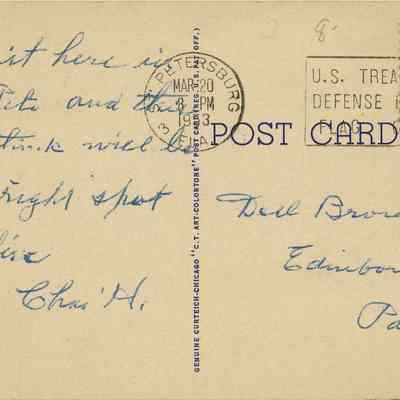 here in
Pete and the
think will be
bright spot
Chas H.
PETERSBURG
MAR 20
PM
1953
3
FLA.
U.S. TREA
DEFENSE
FLAG
POST CARD
GENUINE CURTEICH-CHICAGO "C.T. ART-COLORTONE" POST CARD (REG. U.S. PAT. OFF.)
Dell
Edinbor
Pa